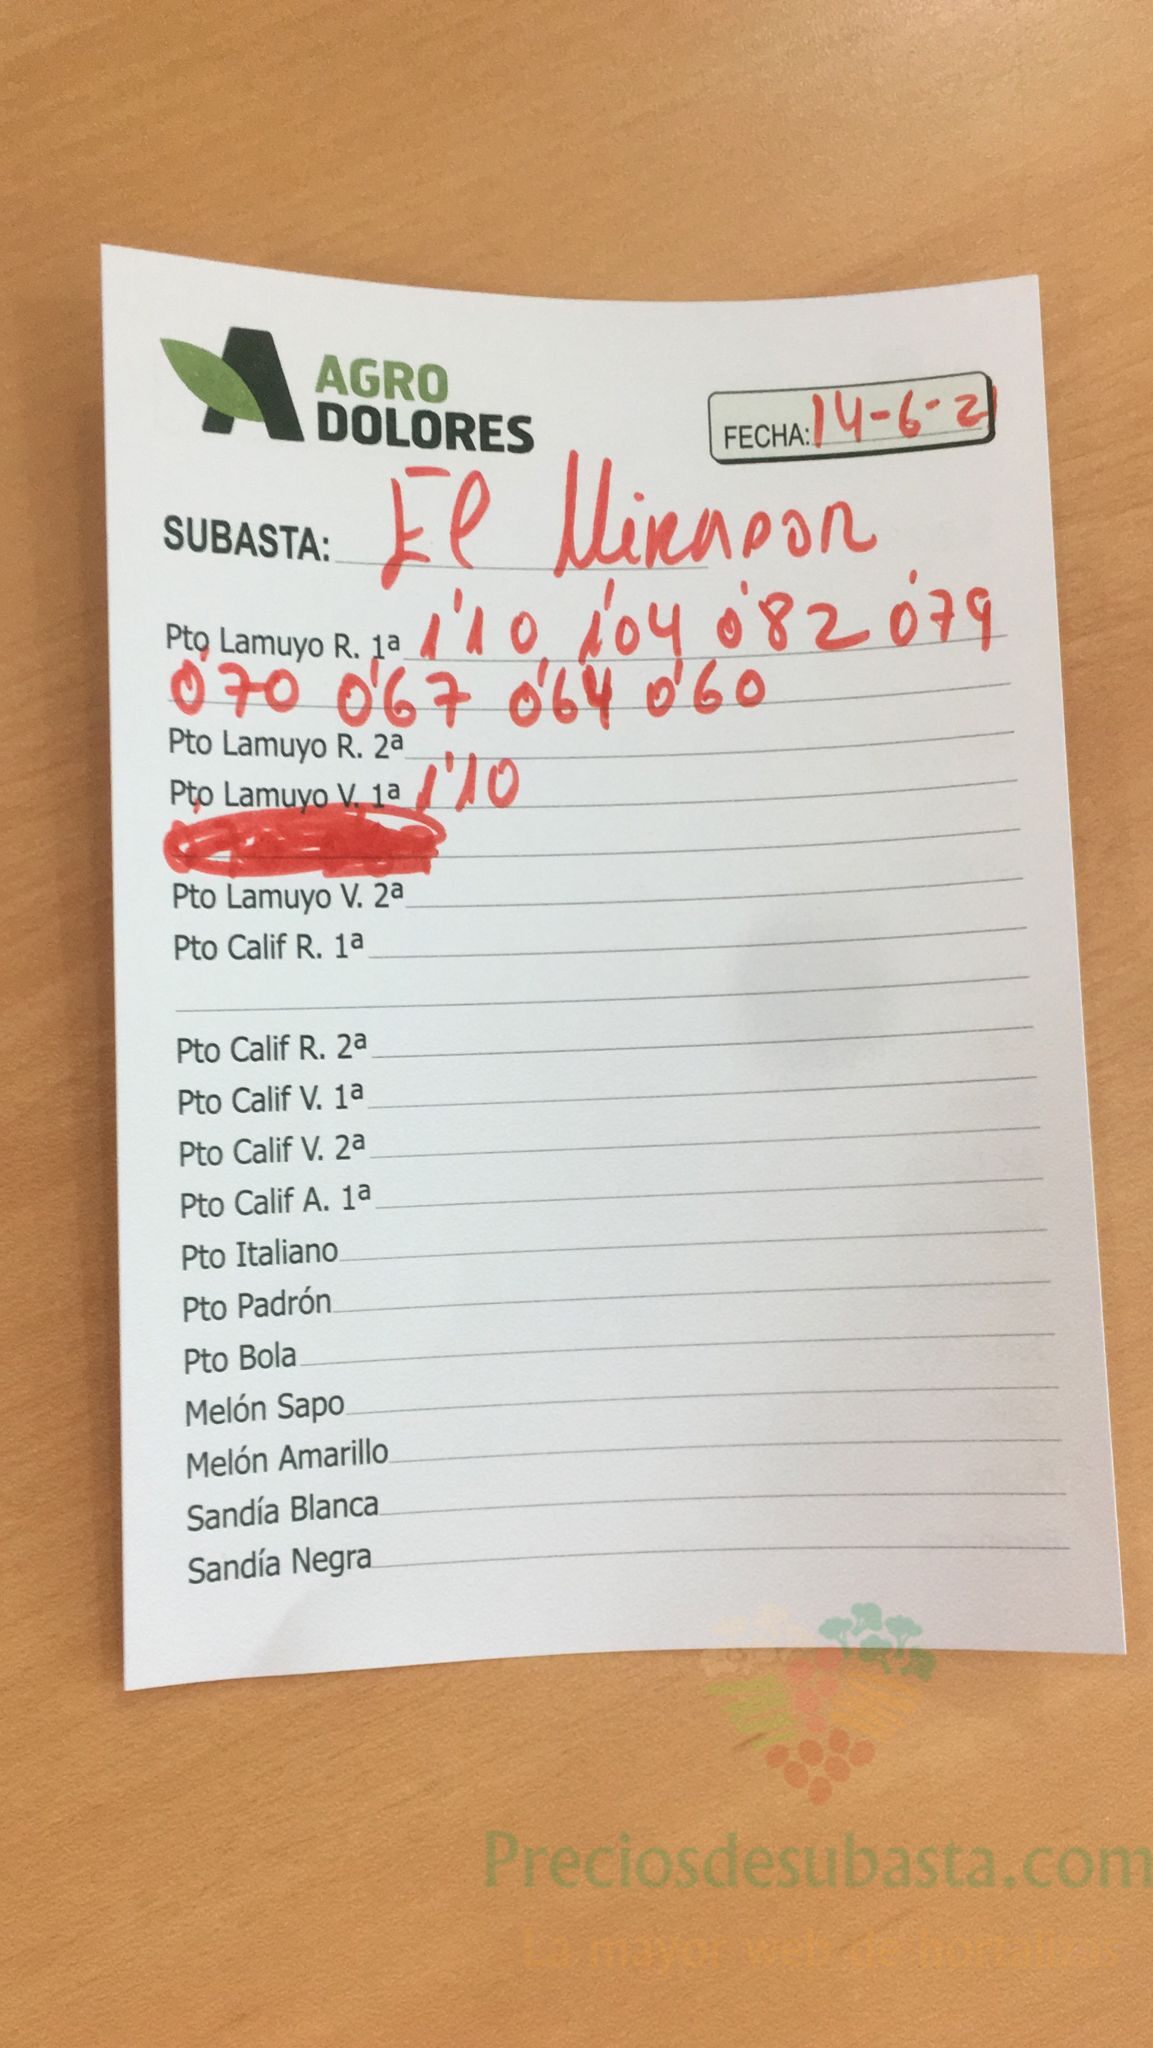 AGRO
DOLORES
FECHA: 14-6-21
SUBASTA: El Mirador
Pto Lamuyo R. 1ª 1'10 1'04 0'82 0'79
0'70 0'67 0'64 0'60
Pto Lamuyo R. 2ª
Pto Lamuyo V. 1ª 1'10
Pto Lamuyo V. 2ª
Pto Calif R. 1ª
Pto Calif R. 2ª
Pto Calif V. 1ª
Pto Calif V. 2ª
Pto Calif A. 1ª
Pto Italiano
Pto Padrón
Pto Bola
Melón Sapo
Melón Amarillo
Sandía Blanca
Sandía Negra
Preciosdesubasta.com
La mayor web de hortalizas